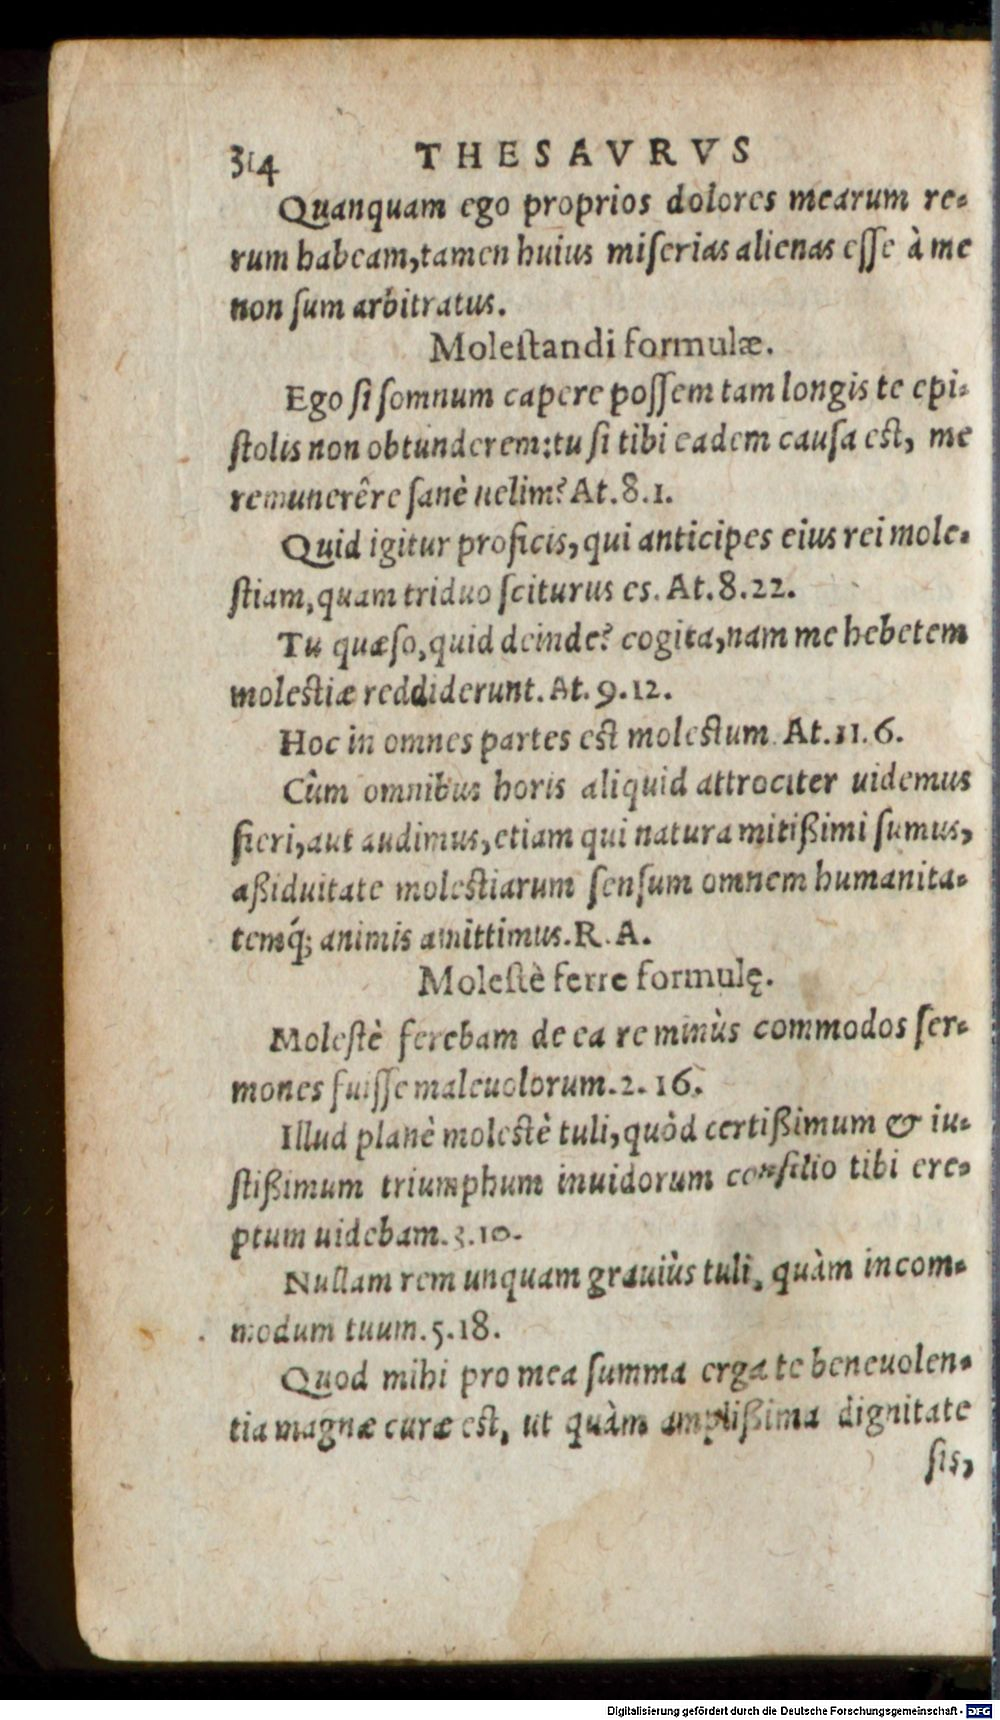 314 THESAVRVS
Quanquam ego proprios dolores mearum re-
rum habeam,tamen huius miſerias alienas eſſe à me
non ſum arbitratus.
Moleſtandi formulæ.
Ego ſi ſomnum capere poſſem tam longis te epi-
ſtolis non obtunderem:tu ſi tibi eadem cauſa eſt, me
remunerêre ſanè uelim? At.8.1.
Quid igitur proficis,qui anticipes eius rei mole-
ſtiam,quam triduo ſciturus es. At.8.22.
Tu quæſo,quid deinde? cogita,nam me hebetem
moleſtiæ reddiderunt. At. 9.12.
Hoc in omnes partes eſt moleſtum. At.11.6.
Cùm omnibus horis aliquid attrociter uidemus
fieri,aut audimus,etiam qui natura mitißimi ſumus,
aßiduitate moleſtiarum ſenſum omnem humanita-
temq́; animis amittimus.R.A.
Moleſtè ferre formulę.
Moleſtè ferebam de ea re minùs commodos ſer-
mones fuiſſe maleuolorum.2.16.
Illud planè moleſtè tuli,quòd certißimum & iu-
ſtißimum triumphum inuidorum conſilio tibi ere-
ptum uidebam.3.10.
Nullam rem unquam grauiùs tuli, quàm incom-
modum tuum.5.18.
Quod mihi pro mea ſumma erga te beneuolen-
tia magnæ curæ eſt, ut quàm amplißima dignitate
ſis,
Digitalisierung gefördert durch die Deutsche Forschungsgemeinschaft - DFG